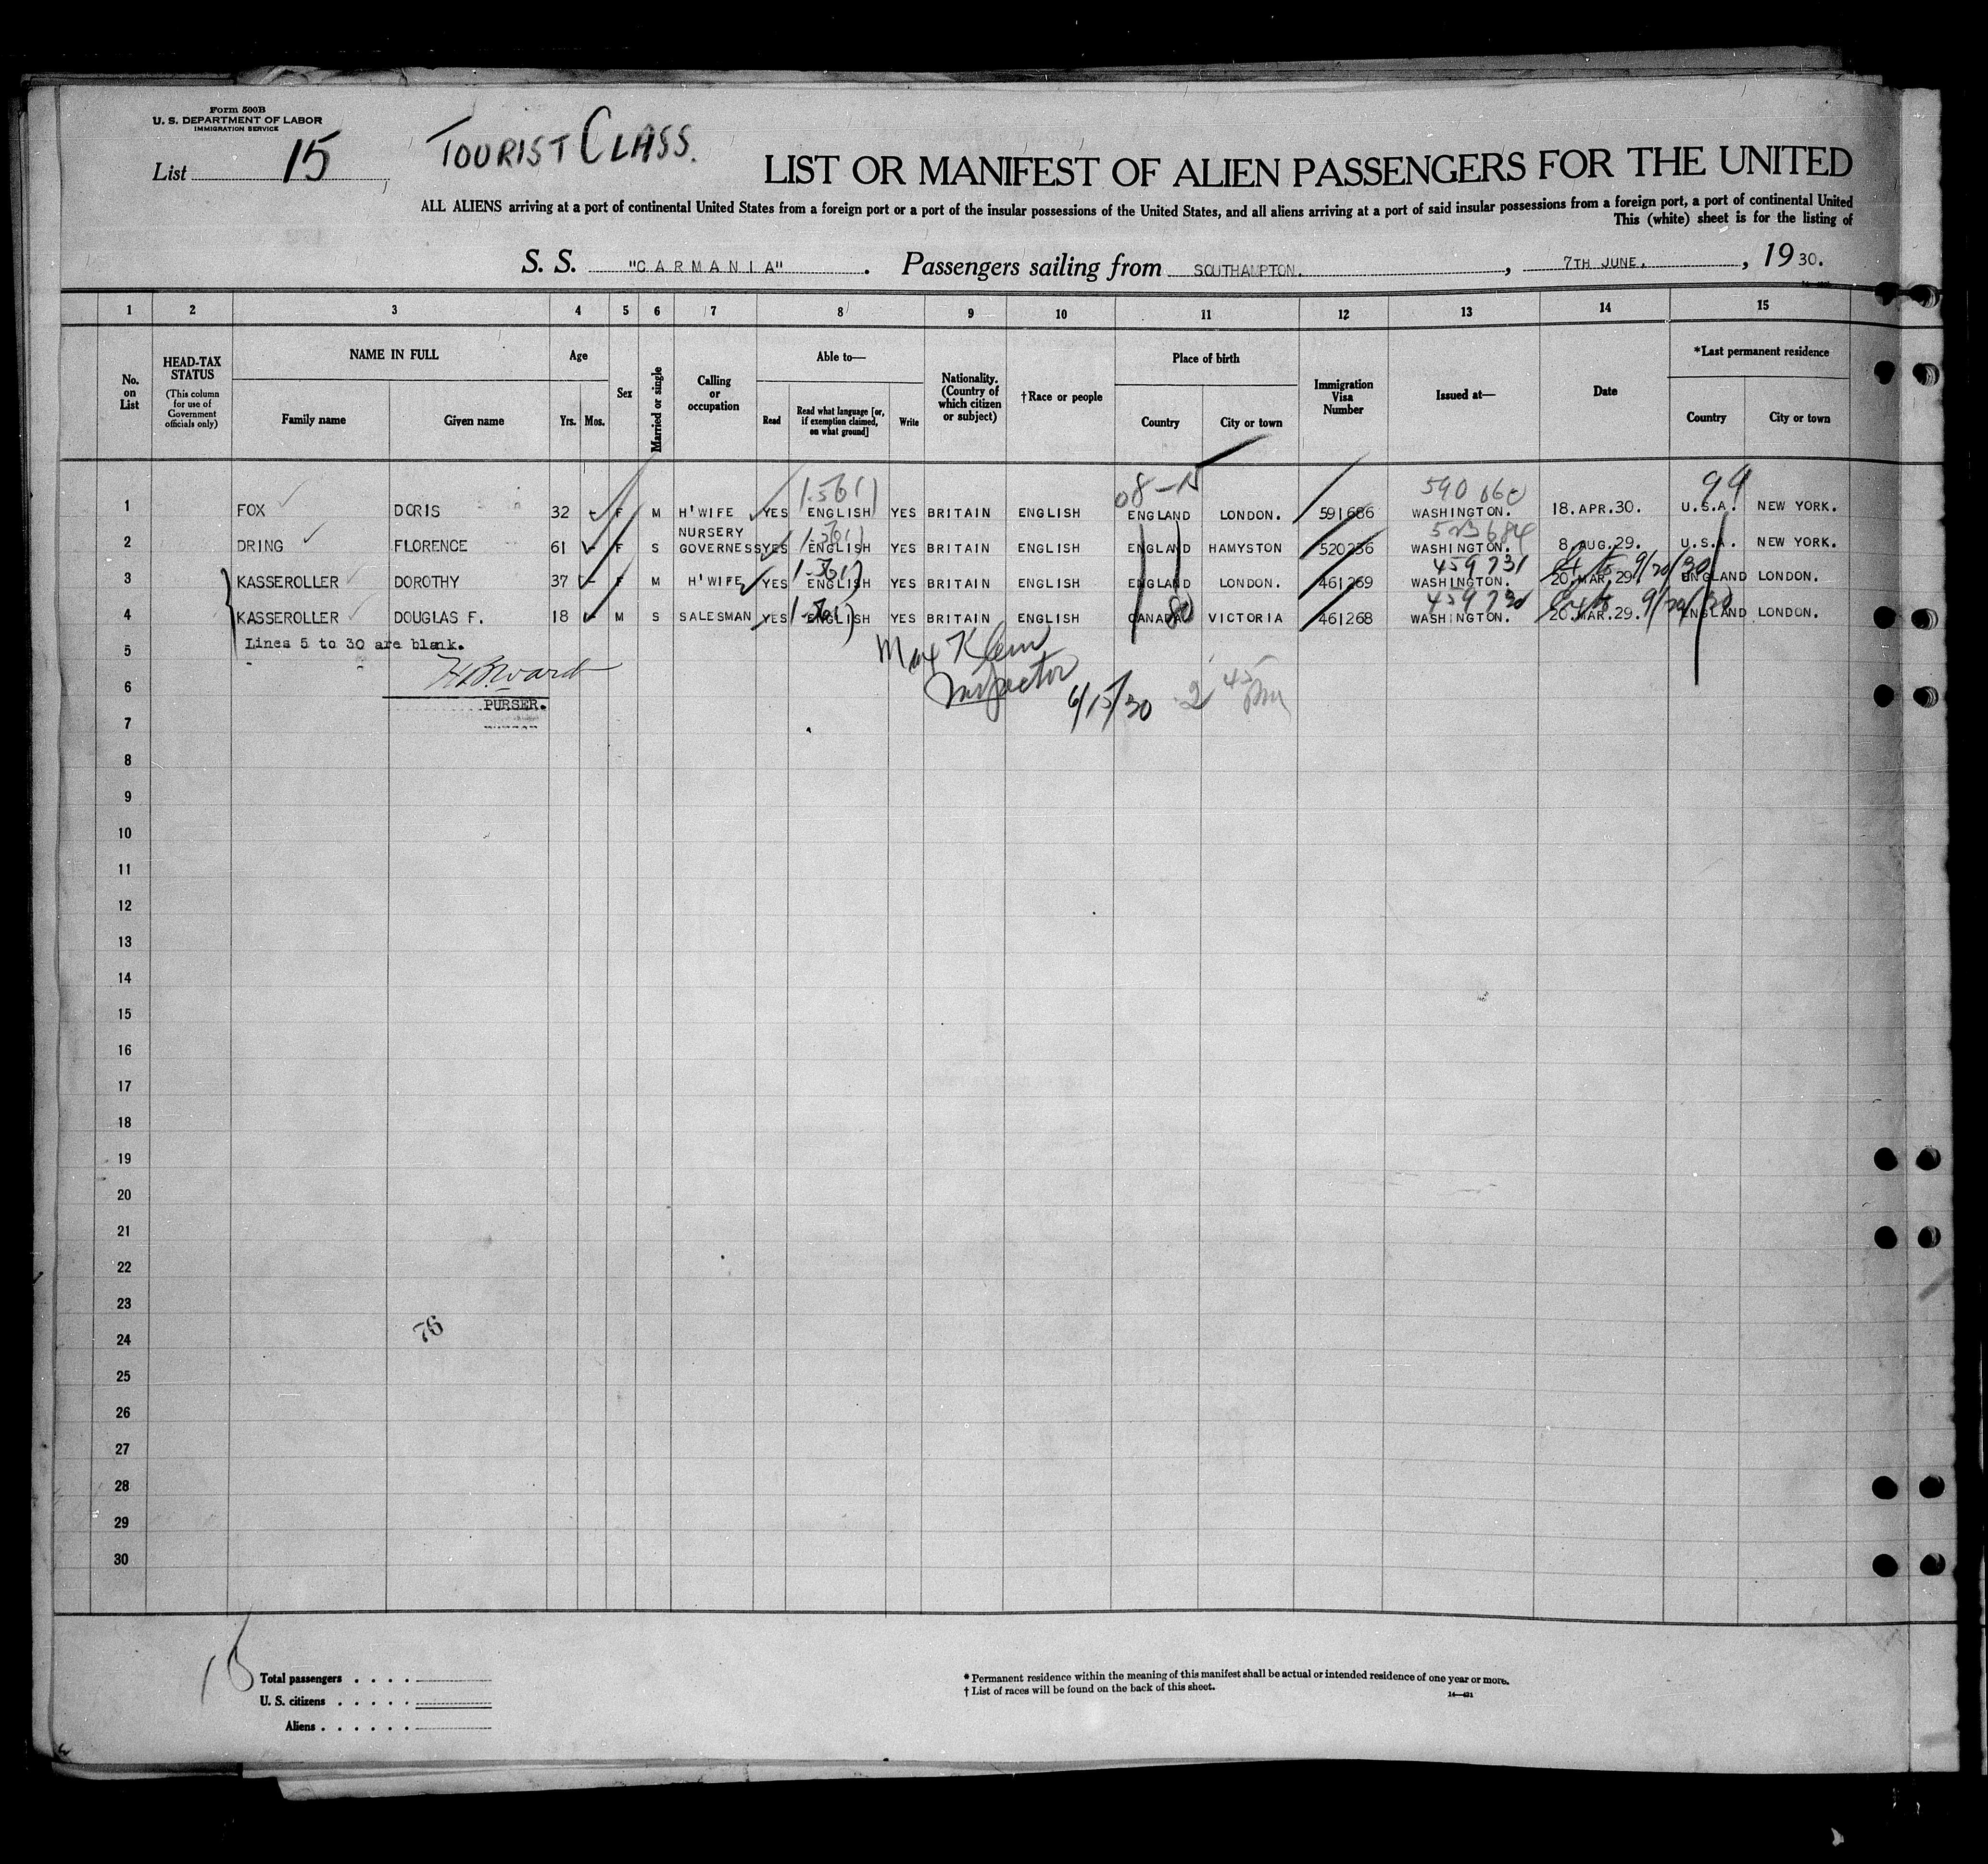 Form 500B
U. S. DEPARTMENT OF LABOR
IMMIGRATION SERVICE
List 15
TOURIST CLASS.
LIST OR MANIFEST OF ALIEN PASSENGERS FOR THE UNITED
ALL ALIENS arriving at a port of continental United States from a foreign port or a port of the insular possessions of the United States, and all aliens arriving at a port of said insular possessions from a foreign port, a port of continental United
This (white) sheet is for the listing of
S. S. "CARMANIA" . Passengers sailing from SOUTHAMPTON. , 7TH JUNE. , 19 30.
1 2 3 4 5 6 7 8 9 10 11 12 13 14 15
No. on List
HEAD-TAX STATUS
(This column for use of Government officials only)
NAME IN FULL
Family name Given name
Age
Yrs. Mos.
Sex
Married or single
Calling or occupation
Able to—
Read
Read what language [or, if exemption claimed, on what ground]
Write
Nationality. (Country of which citizen or subject)
†Race or people
Place of birth
Country City or town
Immigration Visa Number
Issued at—
Date
*Last permanent residence
Country City or town
08-N 590 060 99
1 FOX DORIS 32 - F M H'WIFE YES ENGLISH YES BRITAIN ENGLISH ENGLAND LONDON. 591686 WASHINGTON. 18.APR.30. U.S.A. NEW YORK.
523684
2 DRING FLORENCE 61 - F S NURSERY GOVERNESS YES ENGLISH YES BRITAIN ENGLISH ENGLAND HAMYSTON 520236 WASHINGTON. 8 AUG.29. U.S.A. NEW YORK.
459731 9/20/30
3 KASSEROLLER DOROTHY 37 - F M H'WIFE YES ENGLISH YES BRITAIN ENGLISH ENGLAND LONDON. 461269 WASHINGTON. 20.MAR.29. ENGLAND LONDON.
459730 9/20/30
4 KASSEROLLER DOUGLAS F. 18 - M S SALESMAN YES ENGLISH YES BRITAIN ENGLISH CANADA 80 VICTORIA 461268 WASHINGTON. 20.MAR.29. ENGLAND LONDON.
Lines 5 to 30 are blank.
5
Max Klein
Inspector
6/15/30 2 45 pm
6
PURSER.
7
8
9
10
11
12
13
14
15
16
17
18
19
20
21
22
23
76
24
25
26
27
28
29
30
15
Total passengers . . . .
U. S. citizens . . . . .
Aliens . . . . . .
* Permanent residence within the meaning of this manifest shall be actual or intended residence of one year or more.
† List of races will be found on the back of this sheet.
14—421